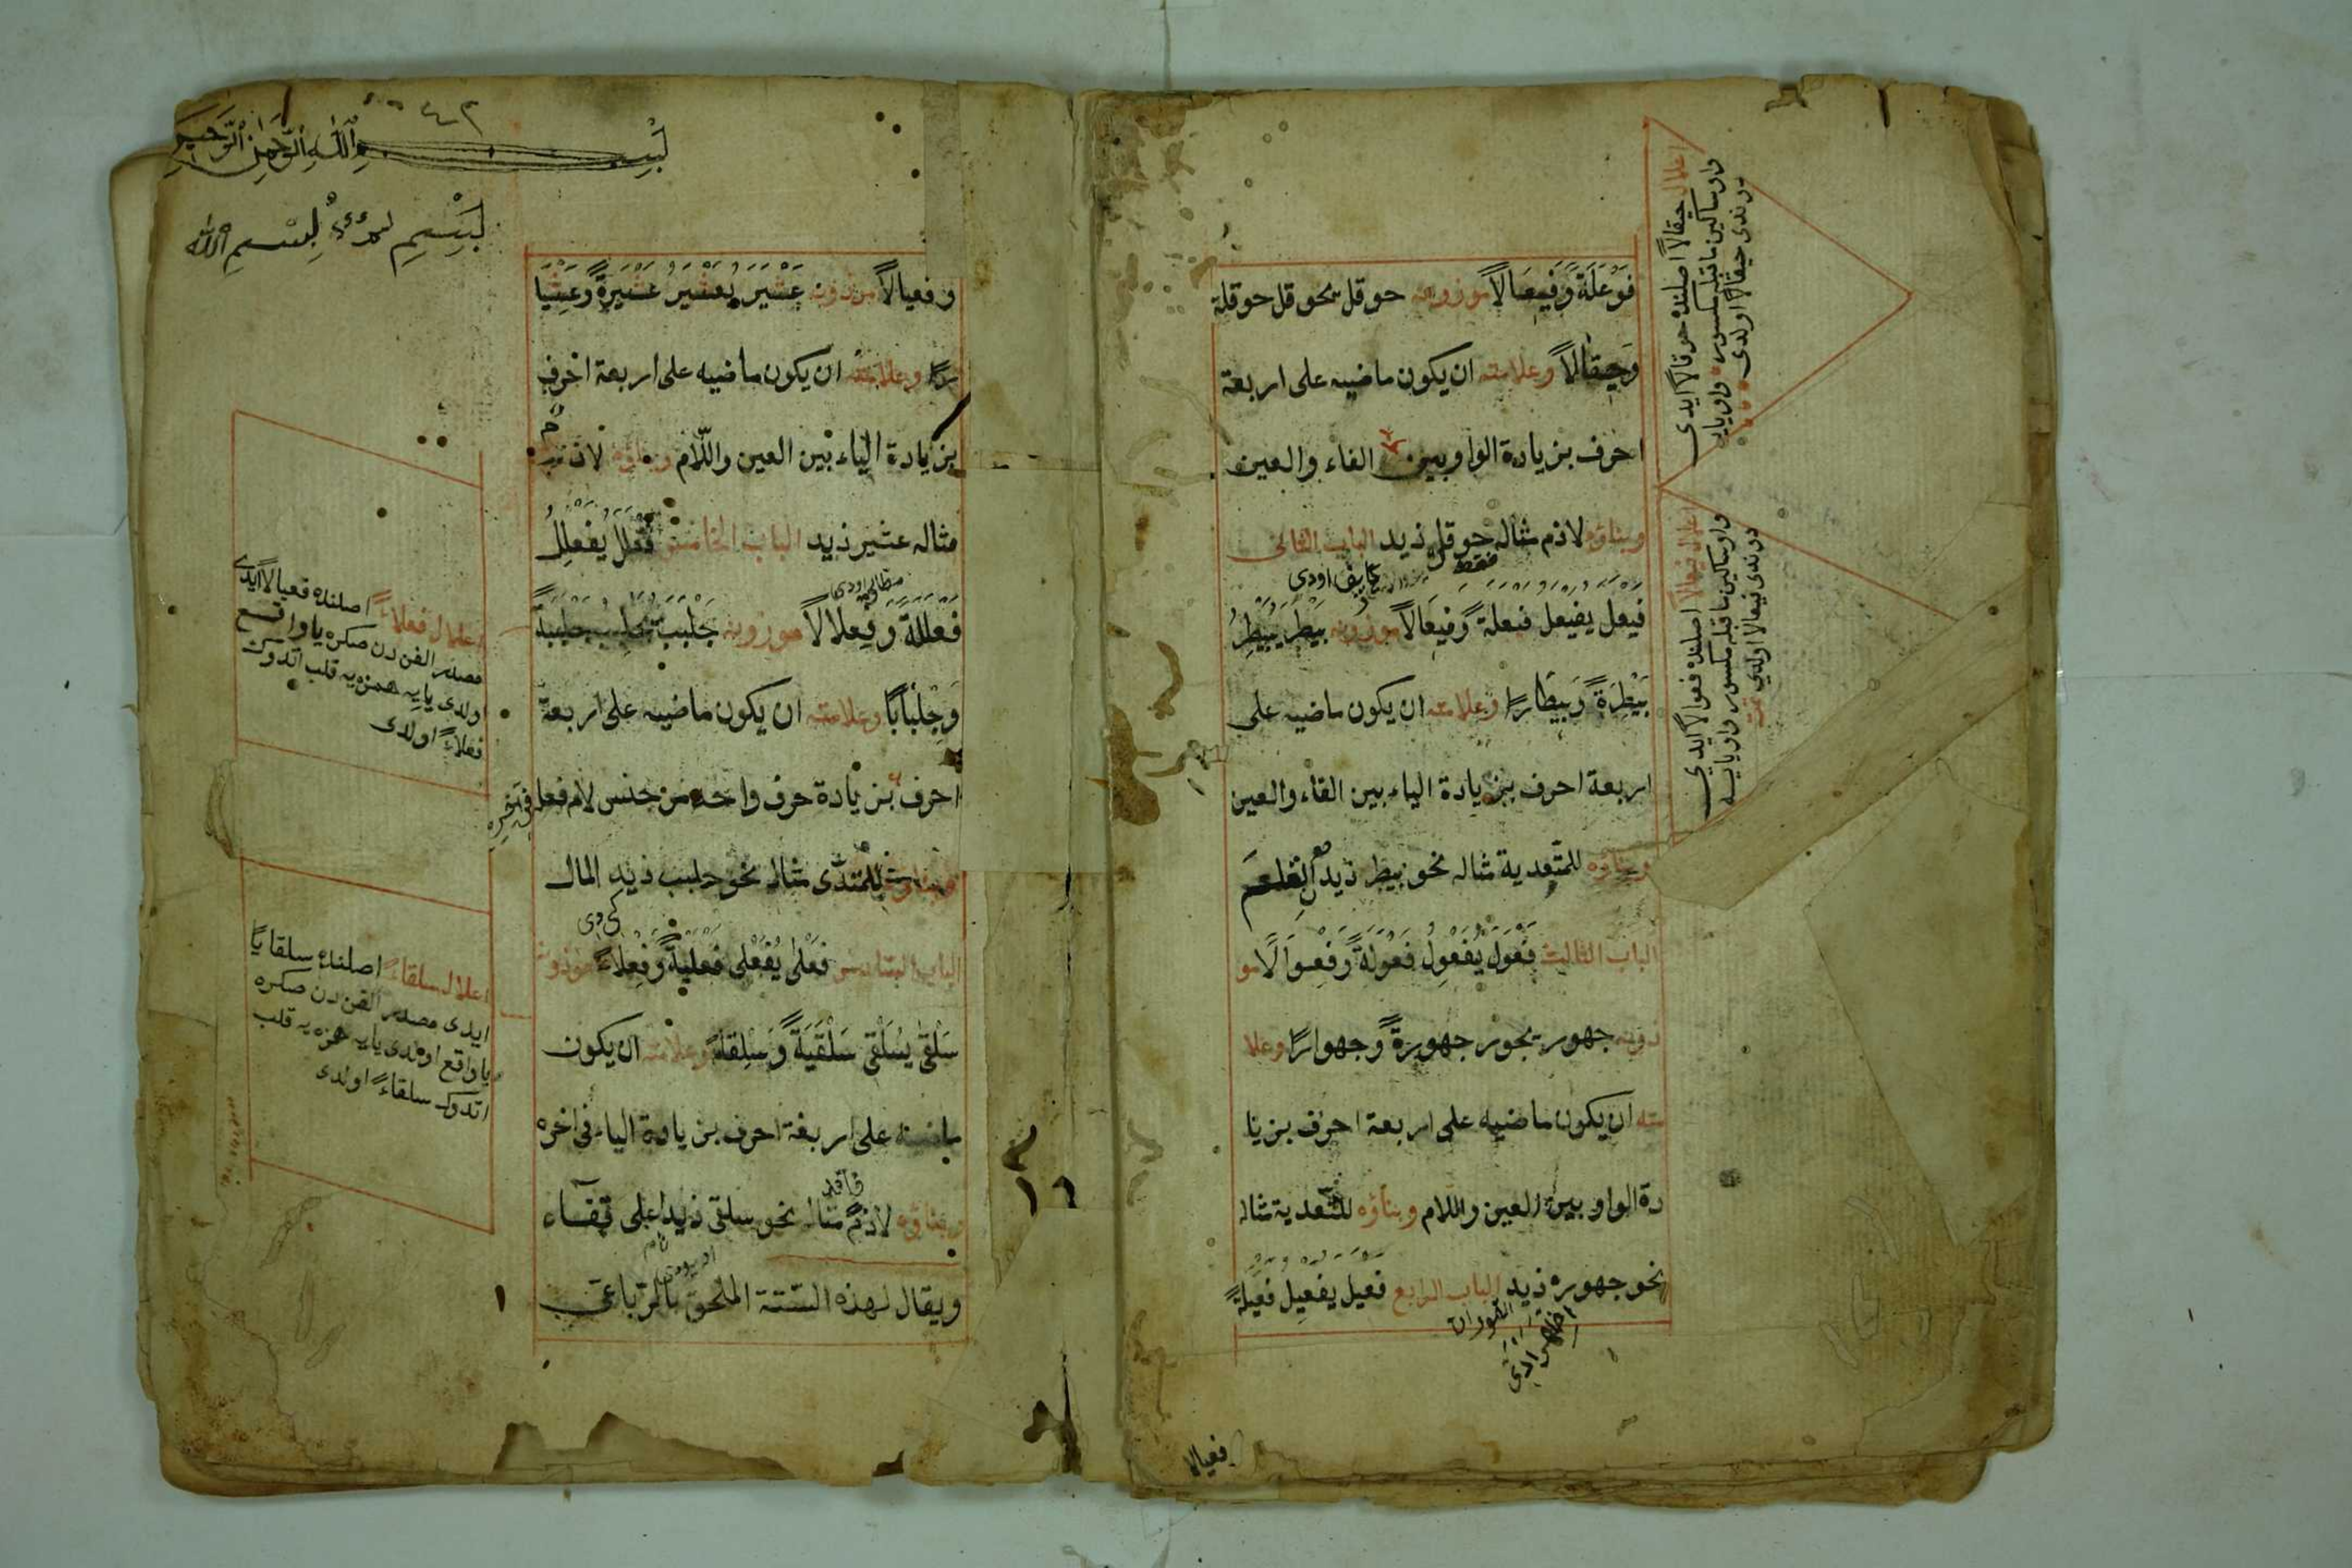 فَوْعَلَةً وَفِيعَالاً موزونه حوقل يحوقل حوقلة
وَحِيقَالاً وعلامته ان يكون ماضيه على اربعة
احرف بزيادة الواو بين الفاء والعين
وبناؤه لازم مثاله حوقل زيد الباب الثانى
فيعل يفيعل فيعلة وفيعالاً موزونه بيطر يبيطر
بَيْطِرَةً وَبِيطَارًا وعلامته ان يكون ماضيه على
اربعة احرف بزيادة الياء بين الفاء والعين
وبناؤه للمتعدية مثاله نحو بيطر زيد القلم
الباب الثالث فَعْوَلَ يُفَعْوِلُ فَعْوَلَةً وَفِعْوَالاً مو
زونه جهور يجهور جهورةً وجهوارًا وعلا
مته ان يكون ماضيه على اربعة احرف بزيا
دة الواو بين العين واللام وبناؤه للتعدية مثاله
نحو جهور زيد القوران الباب الرابع فعيل يفعيل فعيلةً
فعيالا
اعلال حيقالاً اصلنده حوقالاً ايدى
واو ساكين ماقبله مكسوره واو يايه
دوندى حيقالاً اولدى
اعلال فيعالاً اصلنده فوعالاً ايدى
واو ساكين ماقبله مكسور واو يايه
دوندى فيعالاً اولدي
بسم الله الرحمن الرحيم
بسم الله
وفعيالاً موزونه عَثْيَرَ يُعَثْيِرُ عَثْيَرَةً وعِثْيَا
رًا وعلامته ان يكون ماضيه على اربعة احرف
بزيادة الياء بين العين واللام وبناؤه لازم
مثاله عثير زيد الباب الخامس فَعْلَلَ يُفَعْلِلُ
فَعْلَلَةً وَفِعْلالاً موزونه جَلْبَبَ يُجَلْبِبُ جَلْبَبَةً
وَجِلْبَابًا وعلامته ان يكون ماضيه على اربعة
احرف بزيادة حرف واحد من جنس لام فعله فى آخره
وبناؤه للمتعدى مثاله نحو جلبب زيد المال
الباب السادس فَعْلَى يُفَعْلِى فَعْلَيَةً وَفِعْلاءً موزونه
سَلْقَى يُسَلْقِى سَلْقَيَةً وَسِلْقَاءً وعلامته ان يكون
ماضيه على اربعة احرف بزيادة الياء فى اخره
وبناؤه لازم مثاله نحو سلقى زيد اعلى قفاء
ويقال لهذه الستة الملحق بالرباعى
اعلال فعلاءً اصلنده فعيالاً ايدى
مصدر الفن دن صكره يا واقع
اولدى يايه همزه يه قلب اتدوك
فعلاءً اولدى
اعلال سلقاءً اصلنده سلقايًا
ايدى مصدر الفن دن صكره
يا واقع اولدى يايه همزه يه قلب
اتدوك سلقاءً اولدى